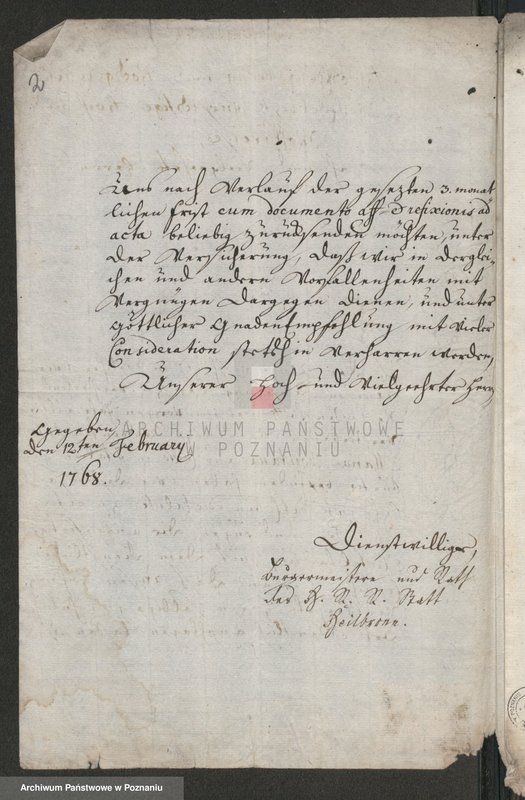 2
Uns nach Verlauf der gesezten 3. monat-
lichen frist cum documento aff- et refixionis ad
acta beliebig zurücksenden möchten, unter
der Versicherung, daß wir in derglei-
chen und andern Vorfallenheiten mit
Vergnügen dargegen dienen, und unter
Göttlicher Gnaden Empfehlung mit vieler
Consideration stetshin verharren werden,
Unserer Hoch- und Vielgeehrter Herrn
ARCHIWUM PAŃSTWOWE
W POZNANIU
Gegeben
den 12ten February
1768.
Dienstwillige,
Burgermeistere und Rath
des H. R. R. Statt
Heilbronn.
Archiwum Państwowe w Poznaniu